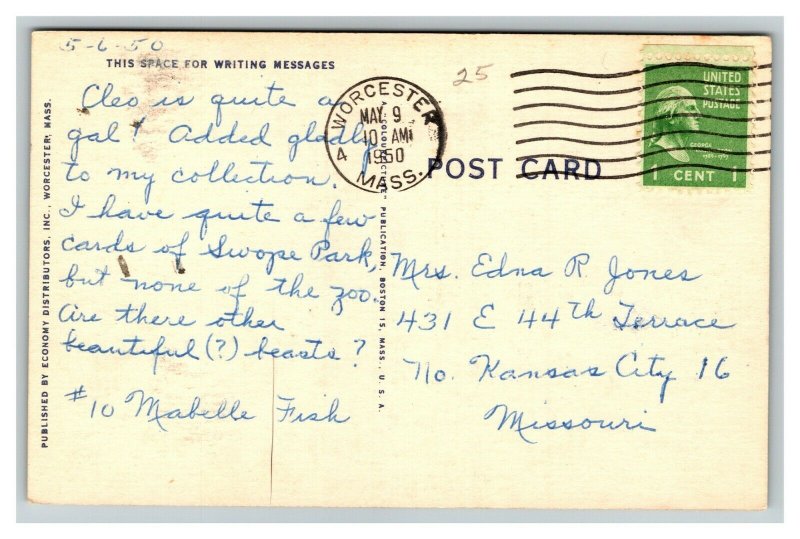 5-6-50
THIS SPACE FOR WRITING MESSAGES
Cleo is quite a
gal! Added gladly
to my collection.
I have quite a few
cards of Swope Park,
but none of the zoo.
Are there other
beautiful (?) beasts?
#10 Mabelle Fish
PUBLISHED BY ECONOMY DISTRIBUTORS, INC., WORCESTER, MASS.
PUBLICATION, BOSTON 15, MASS., U. S. A.
25
WORCESTER
MAY 9
10 AM
1950
4 MASS.
POST CARD
UNITED
STATES
POSTAGE
GEORGE
1 CENT 1
Mrs. Edna R Jones
431 E 44th Terrace
No. Kansas City 16
Missouri